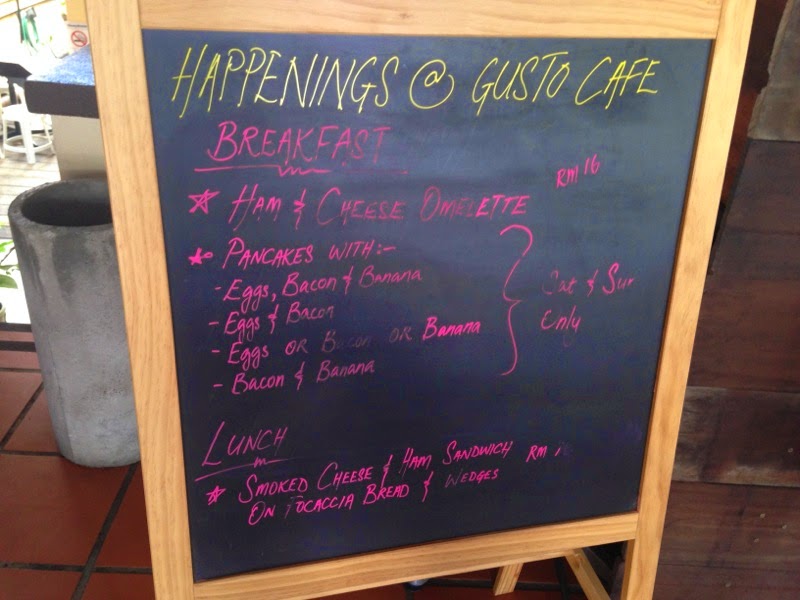 HAPPENINGS @ GUSTO CAFE
BREAKFAST
☆ HAM & CHEESE OMELETTE RM 16
★ PANCAKES WITH:-
- Eggs, Bacon & Banana
- Eggs & Bacon
- Eggs OR Bacon OR Banana
- Bacon & Banana
Sat & Sun
Only
LUNCH
☆ SMOKED CHEESE & HAM SANDWICH RM
ON FOCACCIA BREAD & WEDGES